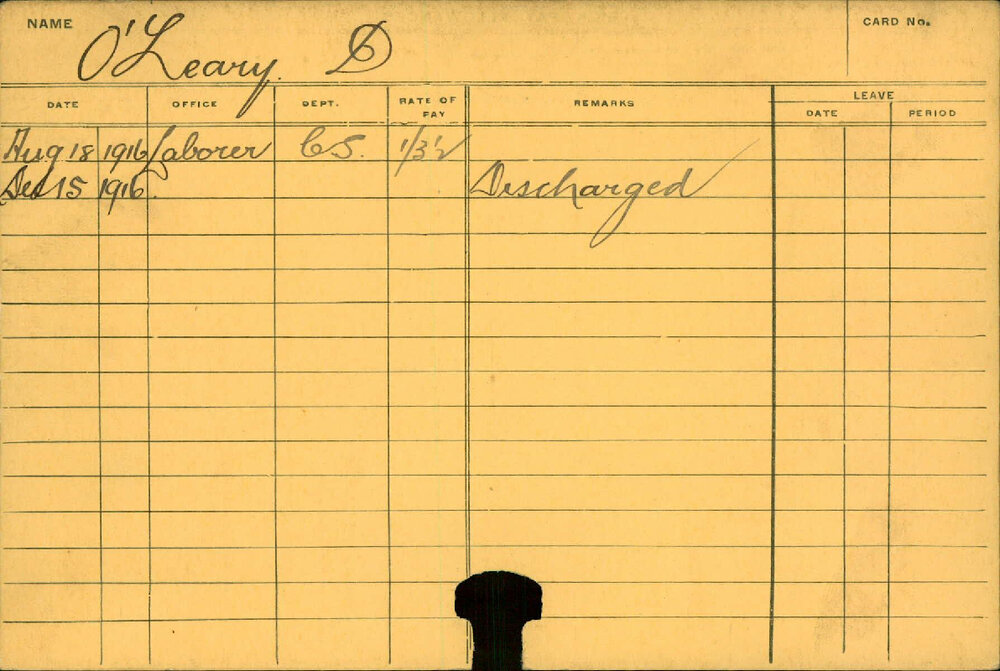 NAME O'Leary. D CARD No.
DATE OFFICE DEPT. RATE OF PAY REMARKS LEAVE
DATE PERIOD
Aug 18 1916 Laborer C.S. 1/3½
Dec 15 1916. Discharged